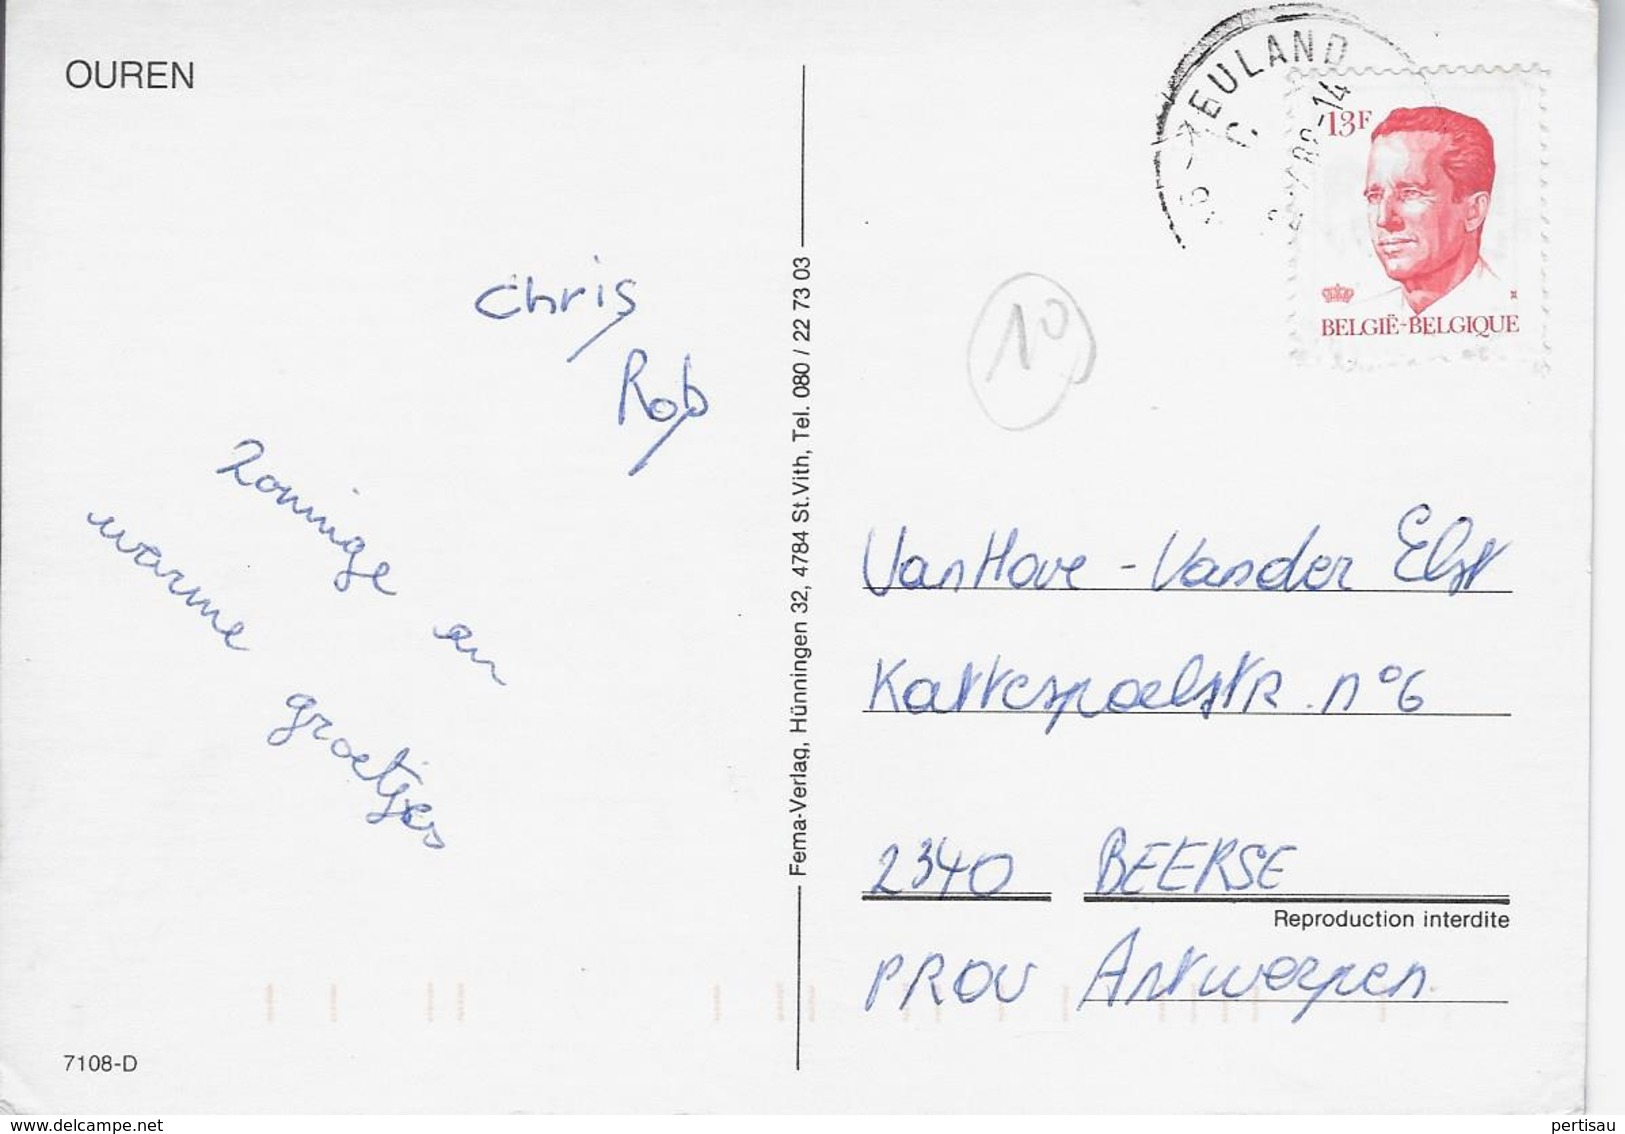 OUREN
Chris
Rob
zonnige en
warme groetjes
7108-D
Fema-Verlag, Hünningen 32, 4784 St.Vith, Tel. 080 / 22 73 03
EULAND
C
13F
BELGIË-BELGIQUE
10
VanHove - Vander Elst
Kattespoelstr. n° 6
2340 BEERSE
Reproduction interdite
PROV Antwerpen
delcampe.net
pertisau